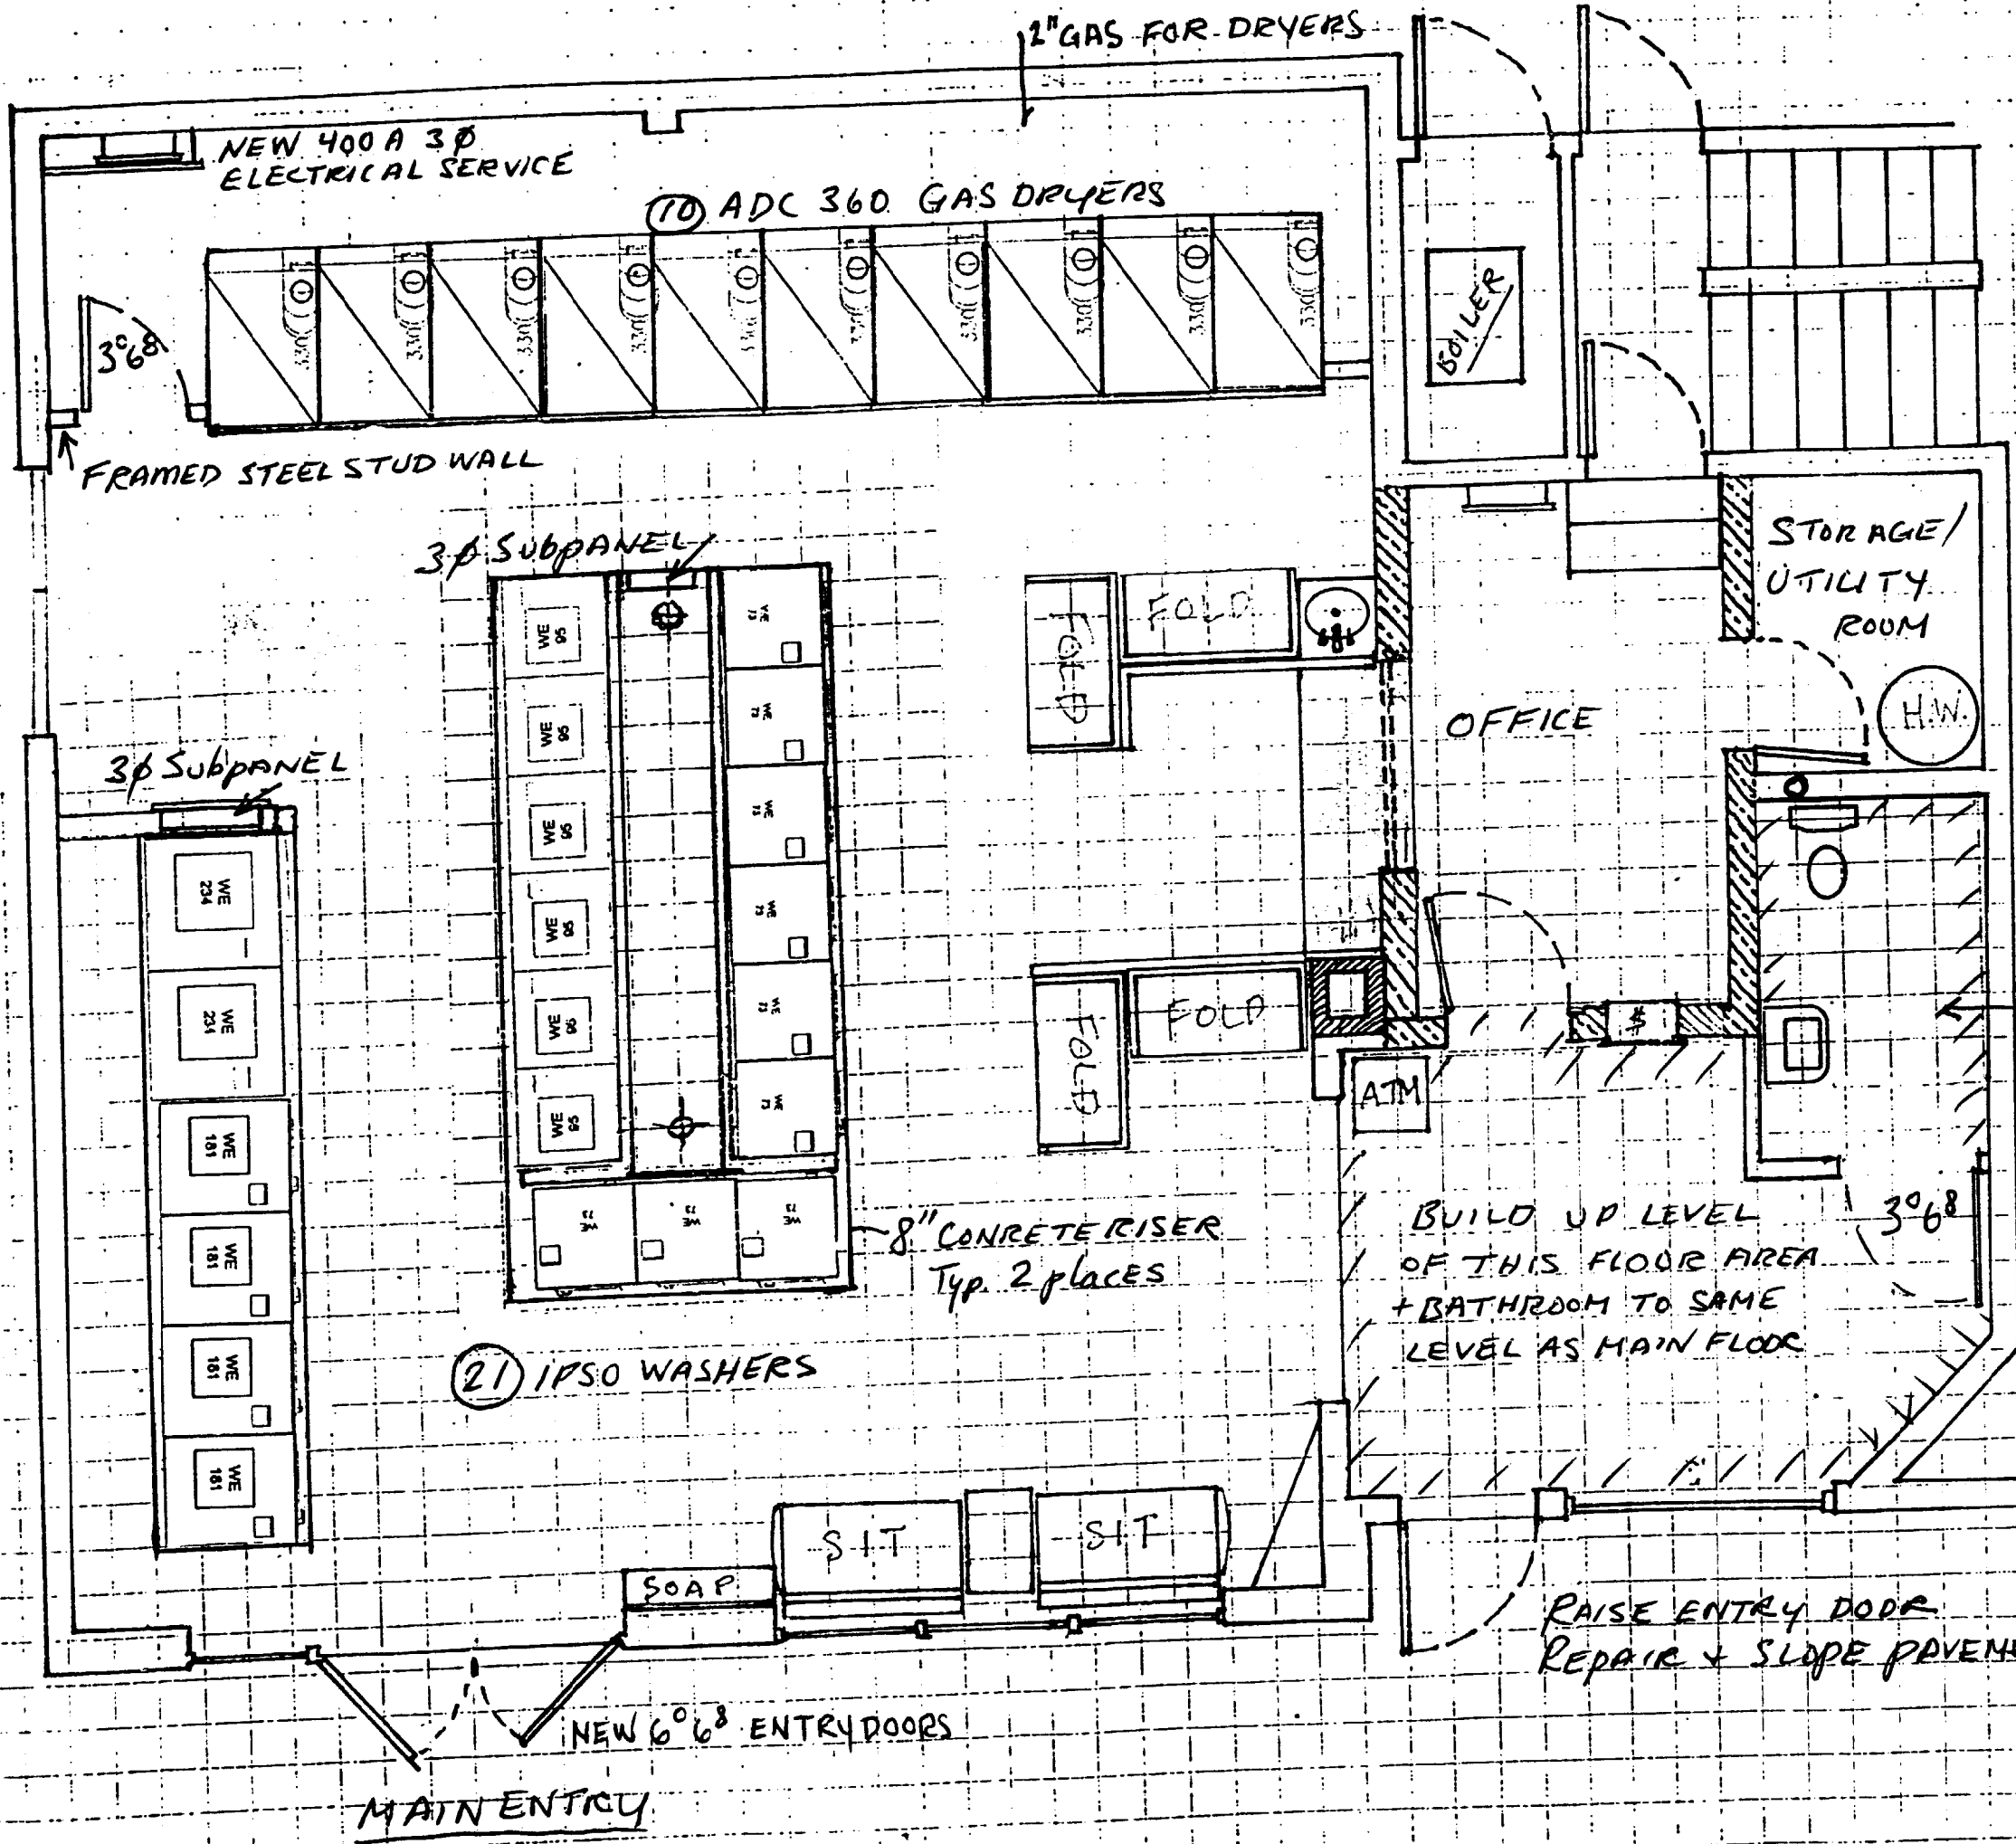 2" GAS FOR DRYERS
NEW 400 A 3Ø
ELECTRICAL SERVICE
(10) ADC 360 GAS DRYERS
330
330
330
330
330
330
330
330
330
330
BOILER
3°6⁸
FRAMED STEEL STUD WALL
3Ø SubpANEL
STORAGE/
UTILITY
ROOM
H.W.
FOLD
FOLD
OFFICE
WE
95
WE
95
WE
95
WE
95
WE
95
WE
95
WE
73
WE
73
WE
73
WE
73
WE
73
WE
73
WE
73
WE
73
WE
73
3Ø SubpANEL
WE
234
WE
234
WE
181
WE
181
WE
181
WE
181
FOLD
FOLD
$
ATM
8" CONRETE RISER
Typ. 2 places
BUILD UP LEVEL
OF THIS FLOOR AREA
+ BATHROOM TO SAME
LEVEL AS MAIN FLOOR
3°6⁸
(21) IPSO WASHERS
SIT
SIT
SOAP
RAISE ENTRY DOOR
REPAIR + SLOPE PAVEME
NEW 6°6⁸ ENTRY DOORS
MAIN ENTRY